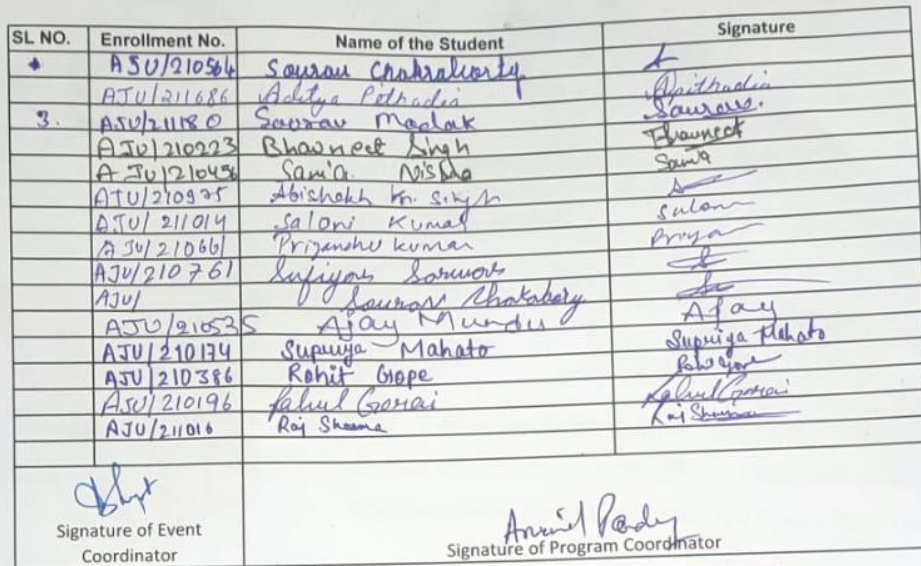 SL NO. Enrollment No. Name of the Student Signature
AJU/210564 Sourav Chakraborty
AJU/211686 Aditya Pithadia Apithadia
3. AJU/211180 Sourav Modak Sourav.
AJU/210223 Bhavneet Singh Bhavneet
AJU/210456 Sania Nisha Sania
AJU/210975 Abishekh Kr. Singh
AJU/211014 Saloni Kumari Saloni
AJU/210661 Priyanshu Kumar Priyan
AJU/210761 Sufiyan Sarwar
AJU/ Sourav Chakabory
AJU/210535 Ajay Mundu Ajay
AJU/210174 Supriya Mahato Supriya Mahato
AJU/210386 Rohit Gope Rohit Gope
AJU/210196 Rahul Gorai Rahul Gorai
AJU/211016 Raj Sharma Raj Sharma
Signature of Event
Coordinator
Signature of Program Coordinator